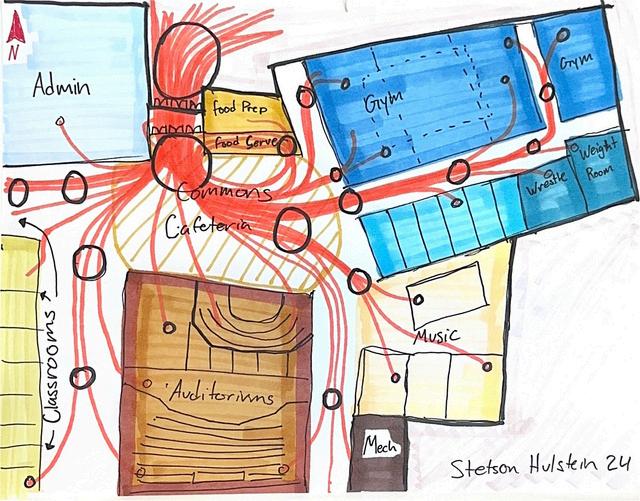 N
Admin
Food Prep
Food Serve
Gym
Gym
Weight
Room
Wrestle
Commons
Cafeteria
Classrooms
Music
Auditoriums
Mech
Stetson Hulstein 24